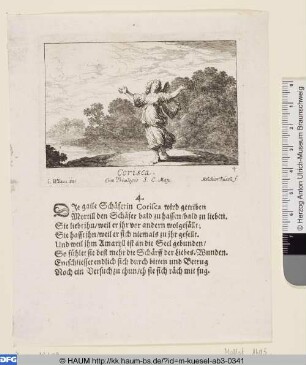 Corisca.
Cum Privilegio S. C. Maj.
Melchior Küsell f.
4.
Die gaile Schäferin Corisca wird getriben
Mirtill den Schäfer bald zu hassen/bald zu lieben.
Sie liebt ihn/weil er ihr vor andern wolgefällt;
Sie hasst ihn/weil er sich niemals zu ihr gesellt.
Und weil ihm Amaryll ist an die Seel gebunden/
So fühlet sie dest mehr die Schärff der Liebes-Wunden.
Entschliesset endlich sich durch bitten und Betrug
Noch ein Versuch zu thun/ob sie sich räch mit fug.
© Herzog Anton Ulrich-Museum Braunschweig
DFG
© HAUM http://kk.haum-bs.de/?id=m-kuesel-ab3-0341